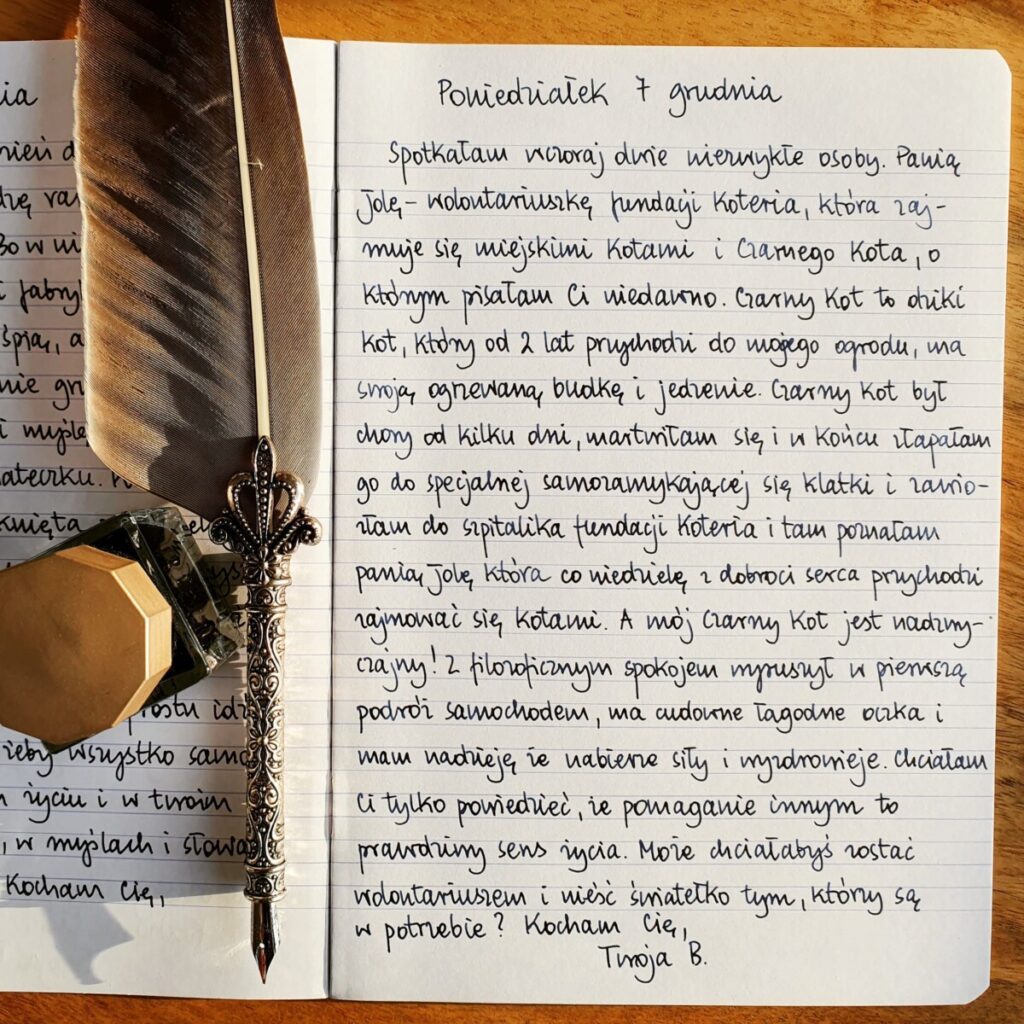 śpią, a
i myśle
knięta
żeby wszystko samo
życiu i w twoim
, w myślach i słowa
Kocham Cię,
Poniedziałek 7 grudnia
Spotkałam wczoraj dwie niezwykłe osoby. Panią
Jolę - wolontariuszkę fundacji Koteria, która zaj-
muje się miejskimi kotami i Czarnego Kota, o
którym pisałam Ci niedawno. Czarny Kot to dziki
kot, który od 2 lat przychodzi do mojego ogrodu, ma
swoją ogrzewaną budkę i jedzenie. Czarny Kot był
chory od kilku dni, martwiłam się i w końcu złapałam
go do specjalnej samozamykającej się klatki i zawio-
złam do szpitalika fundacji Koteria i tam poznałam
panią Jolę która co niedzielę z dobroci serca przychodzi
zajmować się kotami. A mój Czarny Kot jest nadzwy-
czajny! Z filozoficznym spokojem wyruszył w pierwszą
podróż samochodem, ma cudowne łagodne oczka i
mam nadzieję że nabierze siły i wyzdrowieje. Chciałam
Ci tylko powiedzieć, że pomaganie innym to
prawdziwy sens życia. Może chciałabyś zostać
wolontariuszem i nieść światełko tym, którzy są
w potrzebie? Kocham Cię,
Twoja B.